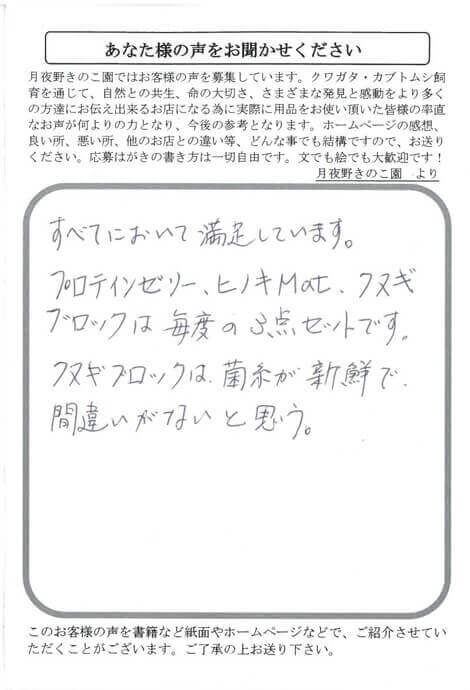 あなた様の声をお聞かせください
月夜野きのこ園ではお客様の声を募集しています。クワガタ・カブトムシ飼
育を通じて、自然との共生、命の大切さ、さまざまな発見と感動をより多く
の方達にお伝え出来るお店になる為に実際に用品をお使い頂いた皆様の率直
なお声が何よりの力となり、今後の参考となります。ホームページの感想、
良い所、悪い所、他のお店との違い等、どんな事でも結構ですので、お送り
ください。応募はがきの書き方は一切自由です。文でも絵でも大歓迎です！
月夜野きのこ園　より
すべてにおいて満足しています。
プロテインゼリー、ヒノキMat、クヌギ
ブロックは毎度の3点セットです。
クヌギブロックは、菌糸が新鮮で、
間違いがないと思う。
このお客様の声を書籍など紙面やホームページなどで、ご紹介させてい
ただくことがございます。ご了承の上お送り下さい。